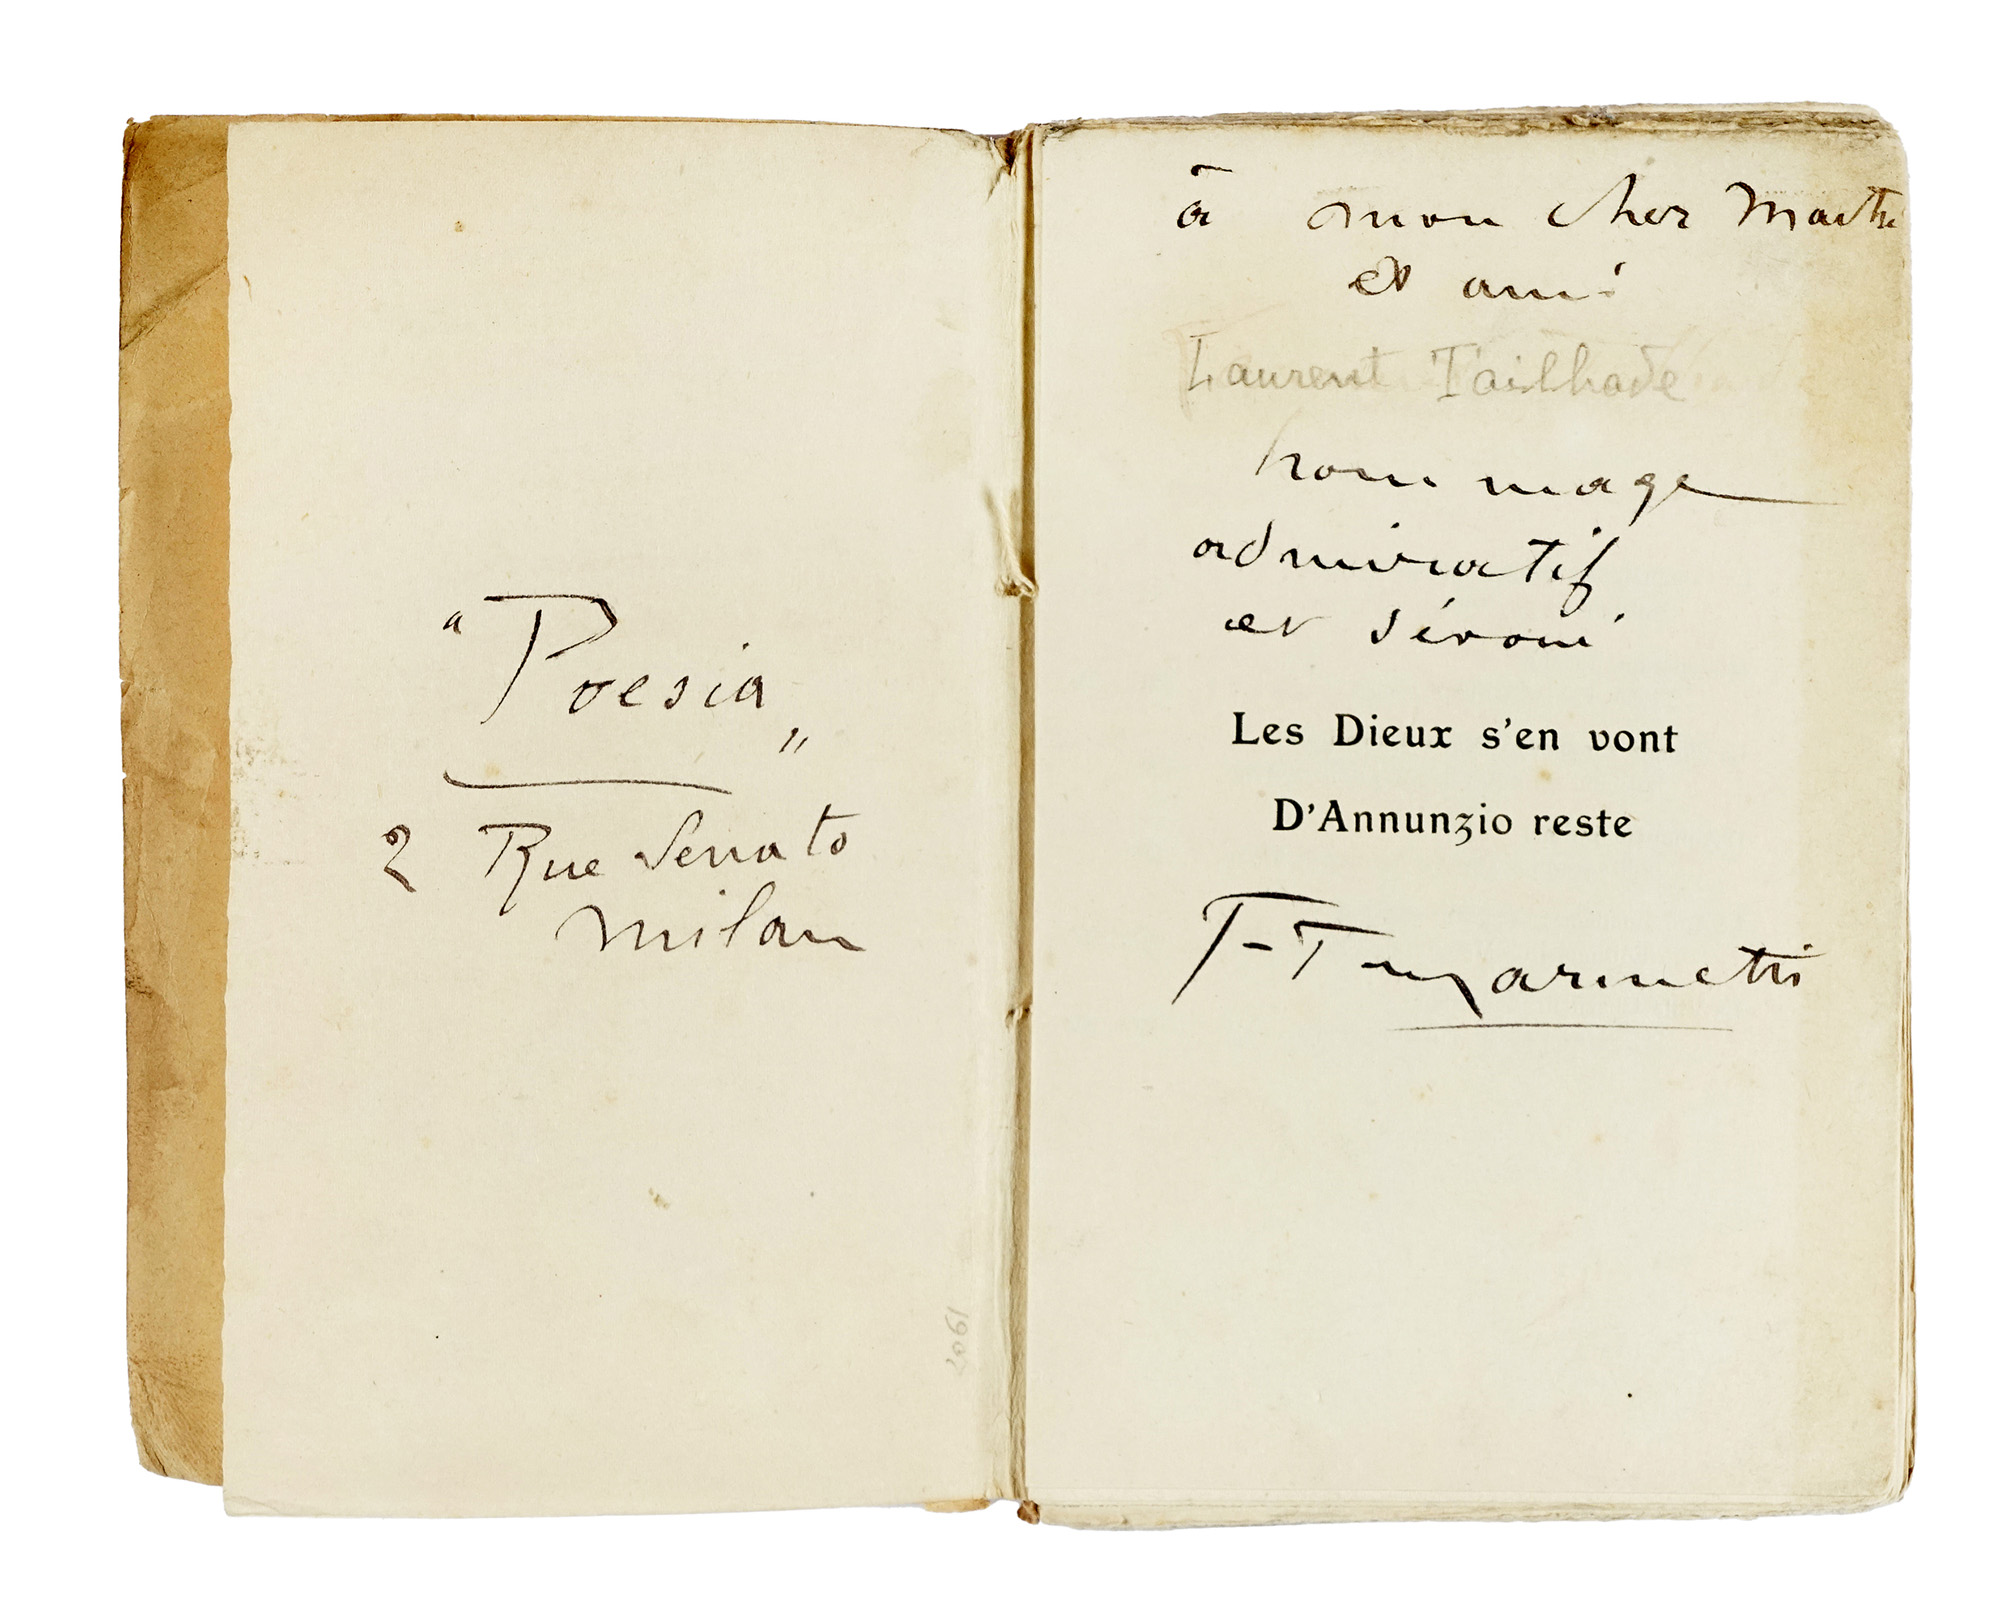 "Poesia"
2 Rue Senato
Milan
1907
à mon cher Maître
et ami
Laurent Tailhade
hommage
admiratif
et dévoué
Les Dieux s'en vont
D'Annunzio reste
F-T Marinetti